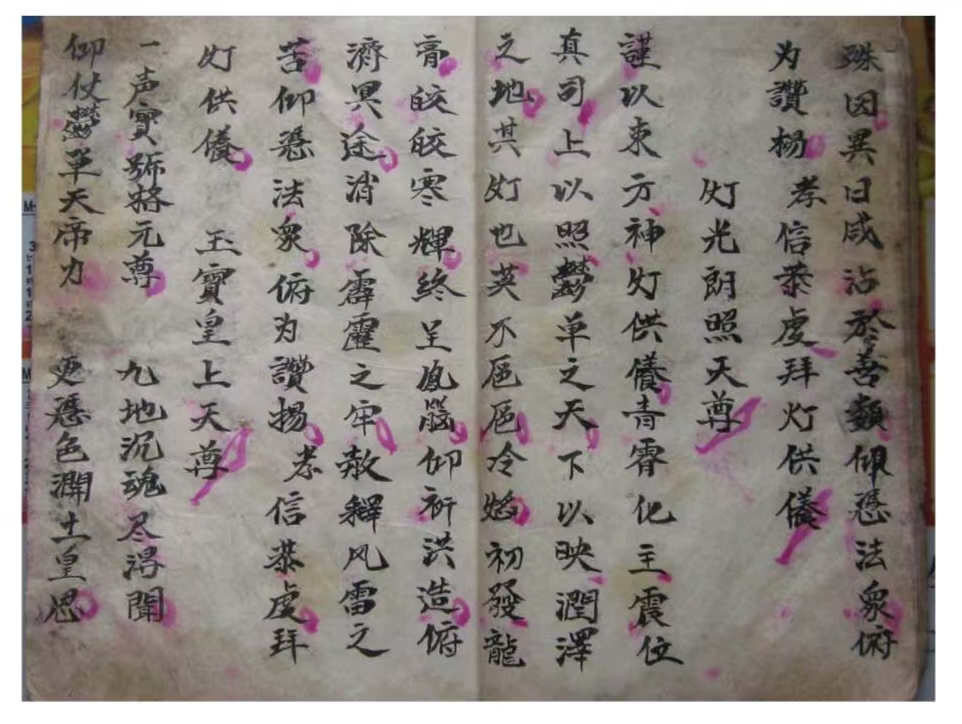 殊因異日咸沾於善類仰憑法衆俯
为讚揚 孝信恭虔拜灯供儀
灯光朗照天尊
謹以東方神灯供儀青霄化主震位
真司上以照鬱单之天下以映潤澤
之地其灯也英不巵巵冷焰初發龍
膏皎皎寒輝終呈鳳腦仰祈洪造俯
濟冥途消除霹靂之牢赦釋风雷之
苦仰憑法衆俯为讚揚 孝信恭虔拜
灯供儀 玉寳皇上天尊
一声寳號格元尊 九地沉魂尽得聞
仰仗鬱单天帝力 更憑色潤土皇恩